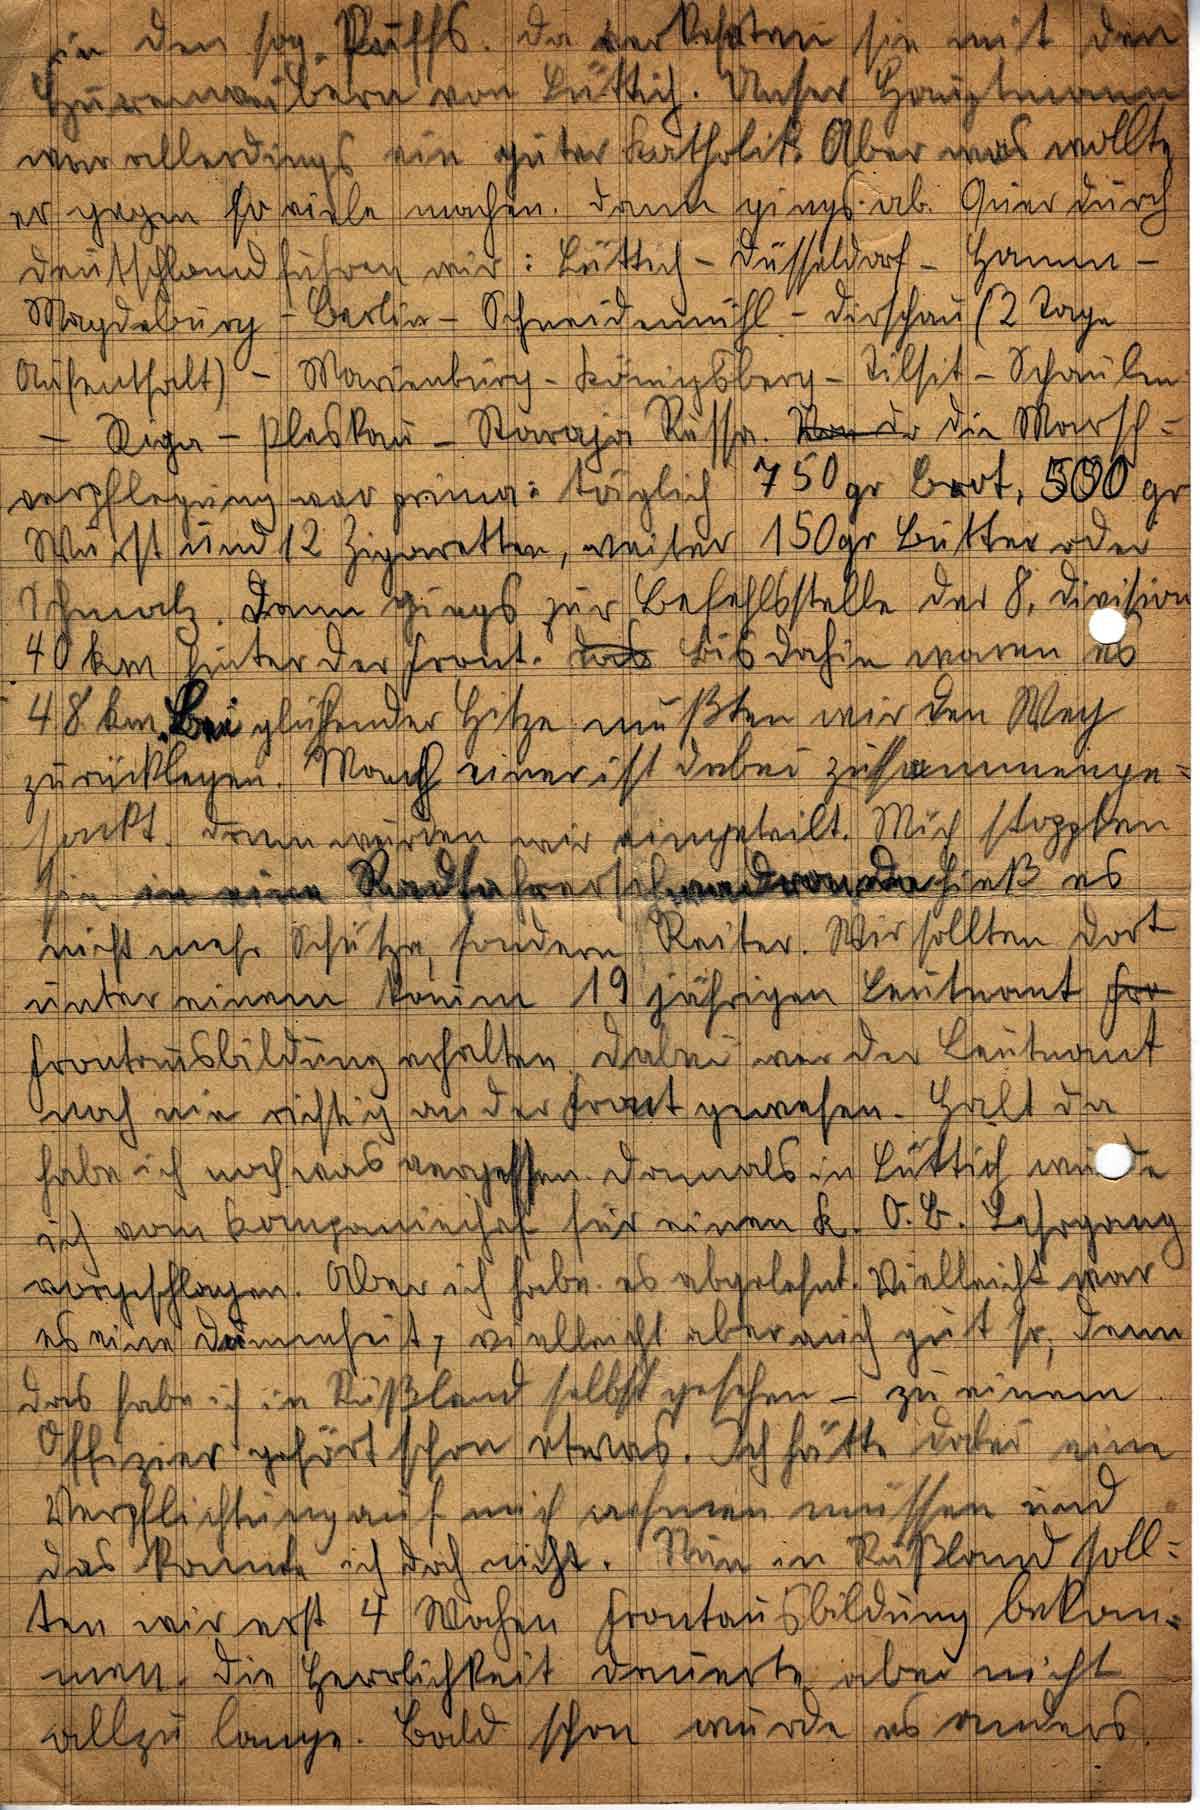 in den sog. Puffs. Da verkehrten sie mit den
Hurenweibern von Lüttich. Unser Hauptmann
war allerdings ein guter Katholik. Aber was wollte
er gegen so viele machen. Dann gings ab. Quer durch
Deutschland fuhren wir: Lüttich - Düsseldorf - Hamm -
Magdeburg - Berlin - Schneidemühl - Dirschau (2 Tage
Aufenthalt) - Marienburg - Königsberg - Tilsit - Schaulen
- Riga - Pleskau - Staraja Russa. Die Marsch=
verpflegung war prima: täglich 750 gr Brot, 500 gr
Wurst und 12 Zigaretten, weiter 150 gr Butter oder
Schmalz. Dann gings zur Befehlsstelle der 8. Division
40 km hinter der Front. das Bis dahin waren es
48 km. Bei glühender Hitze mußten wir den Weg
zurücklegen. Manch einer ist dabei zusammenge=
sackt. Dann wurden wir eingeteilt. Mich stoppten
sie in eine Radfahrerschwadron da hieß es
nicht mehr Schütze, sondern Reiter. Wir sollten dort
unter einem kaum 19 jährigen Leutnant Fro
Frontausbildung erhalten. Dabei war der Leutnant
noch nie richtig an der Front gewesen. Halt da
habe ich noch was vergessen. Damals in Lüttich wurde
ich vom Kompaniechef für einen K. O. B. Lehrgang
vorgeschlagen. Aber ich habe es abgelehnt. Vielleicht war
es eine Dummheit, vielleicht aber auch gut so, denn
das habe ich in Rußland selbst gesehen - zu einem
Offizier gehört schon etwas. Ich hätte dabei eine
Verpflichtung auf mich nehmen müssen und
das konnte ich doch nicht. Nun in Rußland soll=
ten wir erst 4 Wochen Frontausbildung bekom=
men. Die Herrlichkeit dauerte aber nicht
allzu lange. Bald schon wurde es anders.